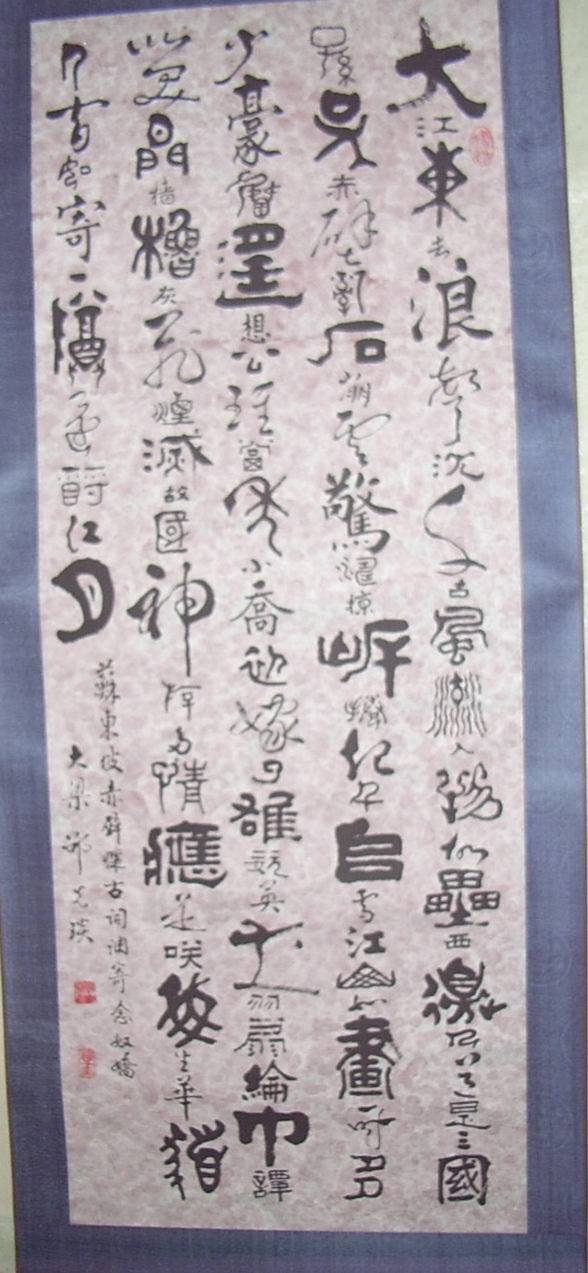 大江東去浪聲沈千古風流人物壘西邊人道是三國
孫吳赤壁亂石崩雲驚濤掠岸捲起千堆雪江山如畫一時多
少豪傑遙想公瑾當年小喬初嫁了雄姿英發羽扇綸巾譚
笑間檣櫓灰飛煙滅故國神遊多情應是咲我生華髮
人間如寄一樽還酹江月
蘇東坡赤壁懷古詞調寄念奴嬌
大梁